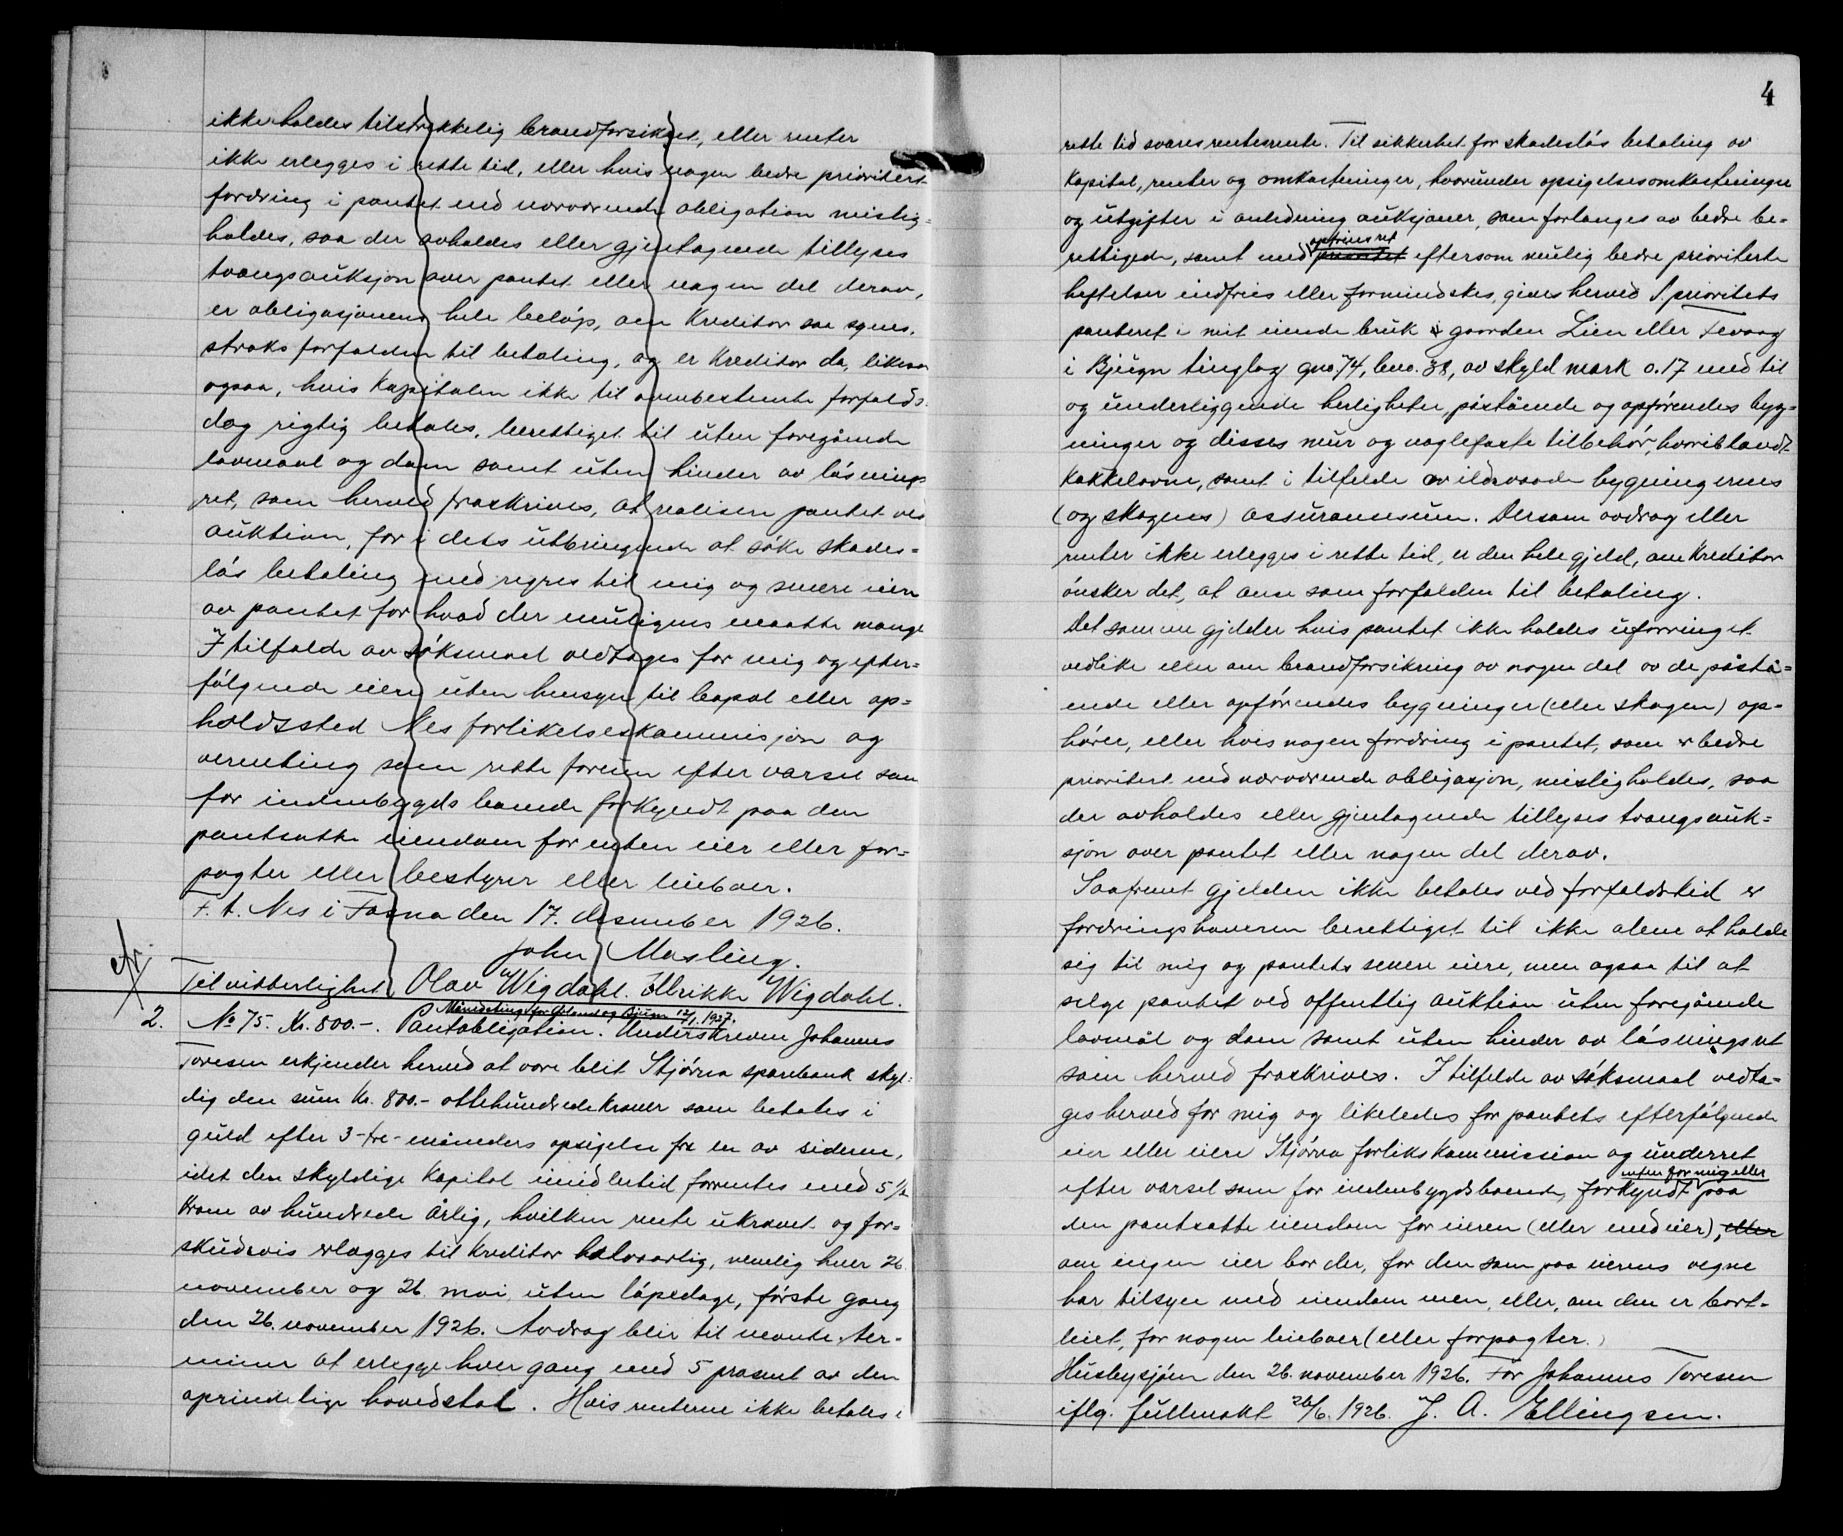 ikke holdes tilstrekkelig brandforsikret, eller renter
ikke erlegges i rette tid, eller hvis nogen bedre prioritert
fordring i pantet end nærværende obligation mislig-
holdes, saa der avholdes eller gjentagende tillyses
tvangsauksjon over pantet eller nogen del derav,
er obligasjonens hele beløp, om kreditor saa synes,
straks forfalden til betaling, og er kreditor da, likesom
ogsaa, hvis kapitalen ikke til ovenbestemte forfalds-
dag rigtig betales, berettiget til uten foregående
lavmaal og dom samt uten hinder av løsnings-
ret, som herved fraskrives, at realisere pantet ved
auktion, for i dets utbringende at søke skades-
løs betaling med regres til mig og senere eiere
av pantet for hvad der muligens maatte mangle
I tilfælde av søksmaal vedtages for mig og efter-
følgende eiere uten hensyn til bopæl eller op-
holdssted Nes forlikelseskommisjon og
verneting som rette forum efter varsel som
for indenbygds boende forkyndt paa den
pantsatte eiendom for enten eier eller for-
pagter eller bestyrer eller leieboer.
F. t. Nes i Fosna den 17. desember 1926.
John Masling.
Til vitterlighet Olav Wigdahl. Ulrikke Wigdahl.
Månedsting for Ørland og Bjugn 12/1. 1927.
2. No 75. Kr. 800.-. Pantobligation. Underskreven Johannes
Toresen erkjender herved at være blit Stjørna sparebank skyl-
dig den sum Kr. 800.- ottehundrede kroner som betales i
guld efter 3-tre- måneders opsigelse fra en av siderne,
idet den skyldige kapital imidlertid forrentes med 5 1/2
krone av hundrede årlig, hvilken rente ukrævet og for-
skudsvis erlægges til kreditor halvaarlig, nemlig hver 26.
november og 26. mai uten løpedage, første gang
den 26. november 1926. Avdrag blir til nevnte ter-
miner at erlegge hver gang med 5 prosent av den
oprindelige hovedstol. Hvis renterne ikke betales i
4
rette tid svares rentesrente. Til sikkerhet for skadesløs betaling av
kapital, renter og omkostninger, hvorunder opsigelsesomkostninger
og utgifter i anledning auksjoner, som forlanges av bedre be-
rettigede, samt med oprinsret eftersom mulig bedre prioriterte
heftelser indfries eller formindskes, gives herved 1. prioritets
panteret i mit eiende bruk i gaarden Lien eller Tevaag
i Bjugn tinglag gno. 74, bno. 38, av skyld mark 0.17 med til
og underliggende herligheter, påstående og opførendes byg-
ninger og disses mur og naglefaste tilbehør, hvoriblandt
kakkelovne, samt i tilfelde av ildsvaade bygningernes
(og skogens) assuransesum. Dersom avdrag eller
renter ikke erlegges i rette tid, er den hele gjeld, om kreditor
ønsker det, at anse som forfalden til betaling.
Det samme gjelder hvis pantet ikke holdes uforringet
vedlike eller om brandforsikring av nogen del av de påstå-
ende eller opførendes bygninger (eller skogen) op-
hører, eller hvis nogen fordring i pantet, som er bedre
prioritert end nærværende obligasjon, misligholdes, saa
der avholdes eller gjentagende tillyses tvangsauk-
sjon over pantet eller nogen del derav.
Saafremt gjelden ikke betales ved forfaldstid er
fordringshaveren berettiget til ikke alene at holde
sig til mig og pantets senere eiere, men ogsaa til at
selge pantet ved offentlig auktion uten foregående
lavmål og dom samt uten hinder av løsningsret
som herved fraskrives. I tilfelde av søksmaal vedta-
ges herved for mig og likeledes for pantets efterfølgende
eier eller eiere Stjørna forlikskommission og underret
efter varsel som for indenbygdsboende, forkyndt enten for mig eller paa
den pantsatte eiendom for eieren (eller medeier), eller
om ingen eier bor der, for den som paa eierens vegne
har tilsyn med eiendommen, eller, om den er bort-
leiet, for nogen leieboer (eller forpagter.)
Husbysjøen den 26. november 1926. For Johannes Toresen
iflg. fullmakt 26/6. 1926. J. A. Ellingsen.